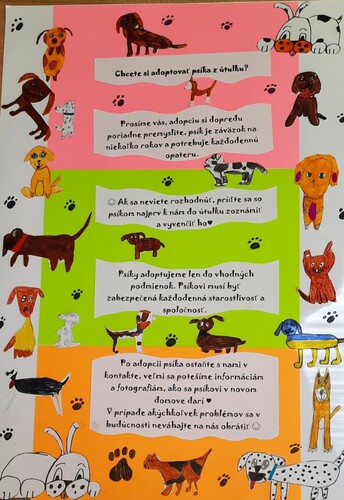 Chcete si adoptovať psíka z útulku?
Prosíme vás, adopciu si dopredu
poriadne premyslite, psík je záväzok na
niekoľko rokov a potrebuje každodennú
opateru.
☺ Ak sa neviete rozhodnúť, príďte sa so
psíkom najprv k nám do útulku zoznámiť
a vyvenčiť ho♥
Psíky adoptujeme len do vhodných
podmienok. Psíkovi musí byť
zabezpečená každodenná starostlivosť a
spoločnosť.
Po adopcii psíka ostaňte s nami v
kontakte, veľmi sa potešíme informáciám
a fotografiám, ako sa psíkovi v novom
domove darí ♥
V prípade akýchkoľvek problémov sa v
budúcnosti neváhajte na nás obrátiť ☺